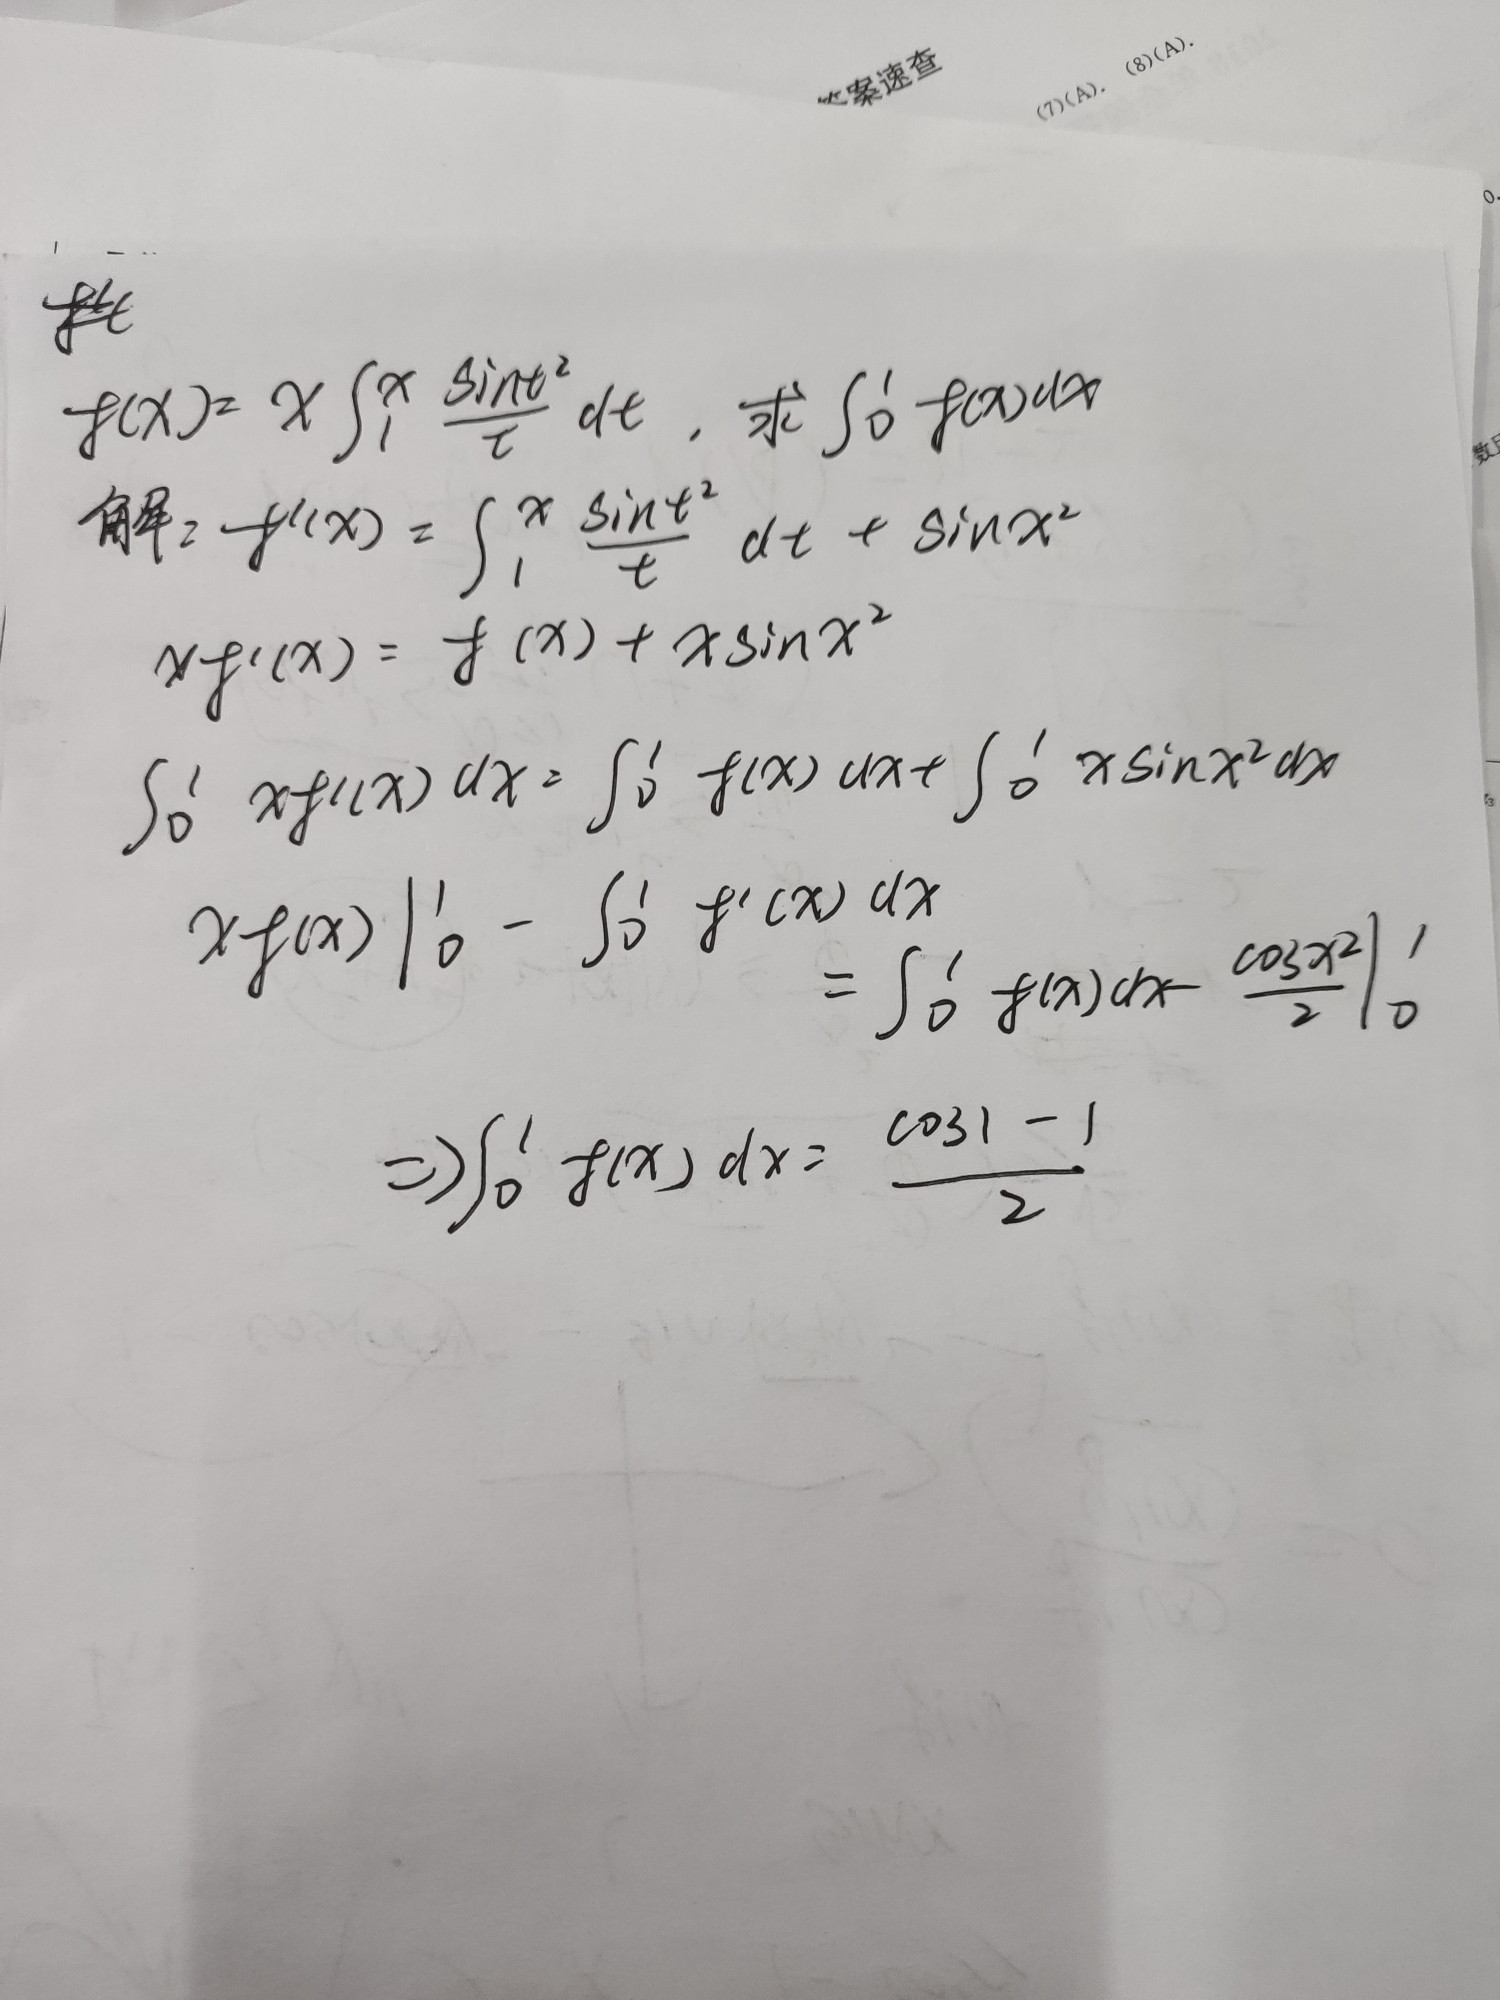 答案速查
(7)(A). (8)(A).
0.
数
f(x)= x∫₁ˣ sint²/t dt, 求∫₀¹ f(x)dx
解: f'(x) = ∫₁ˣ sint²/t dt + sinx²
xf'(x) = f(x) + xsinx²
∫₀¹ xf'(x) dx = ∫₀¹ f(x) dx + ∫₀¹ xsinx²dx
xf(x)|₀¹ - ∫₀¹ f'(x) dx
= ∫₀¹ f(x)dx - cosx²/2 |₀¹
=> ∫₀¹ f(x) dx = (cos1 - 1)/2